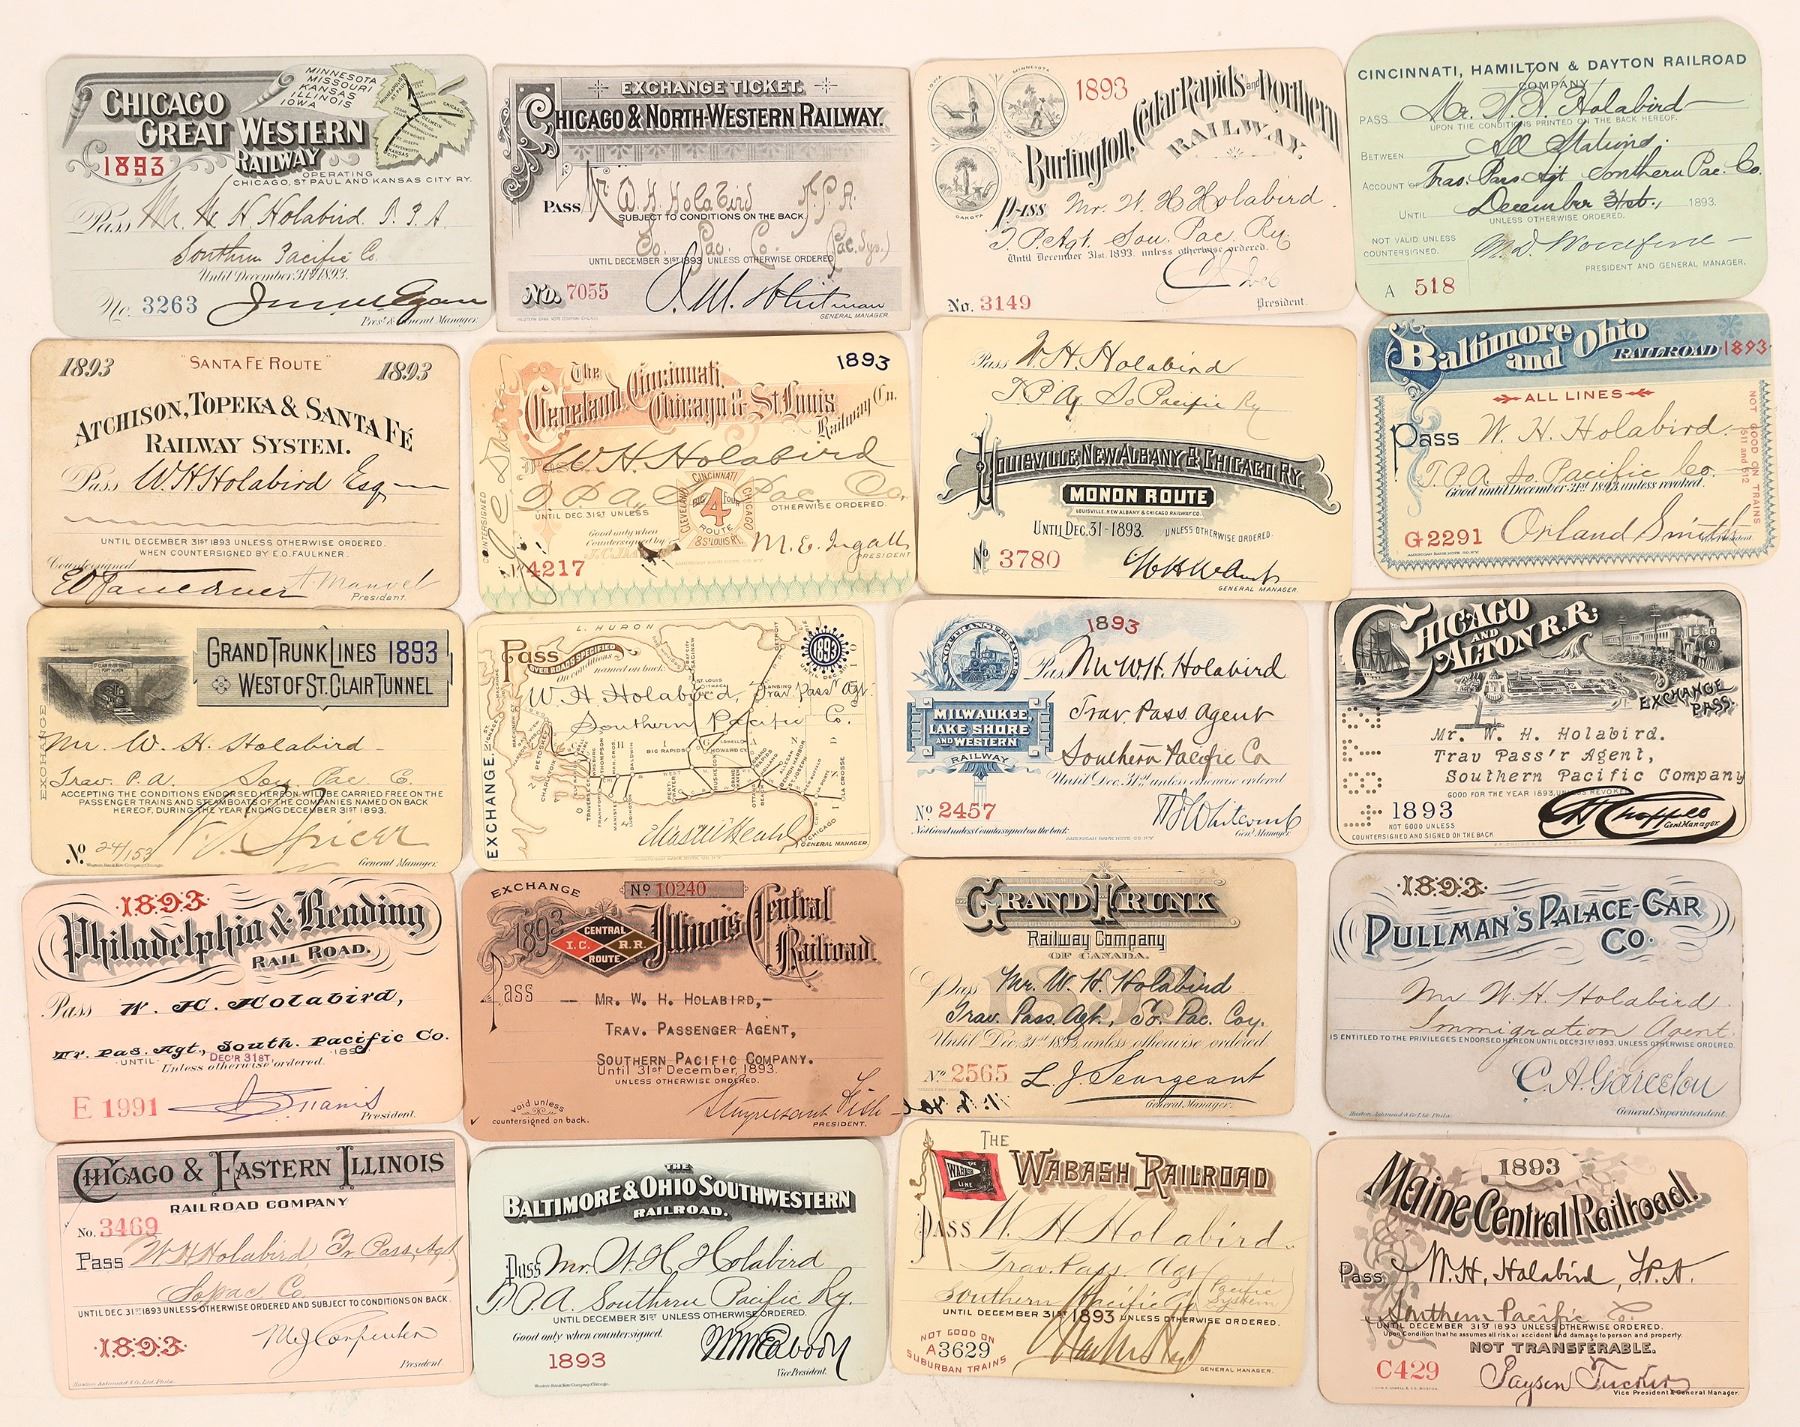 CHICAGO
GREAT WESTERN
RAILWAY
MINNESOTA
MISSOURI
KANSAS
ILLINOIS
IOWA
1893
OPERATING
CHICAGO, ST. PAUL AND KANSAS CITY RY.
Pass Mr. W H Holabird T. P. A.
Southern Pacific Co.
Until December 31st 1893.
No. 3263
Pres't & General Manager.
EXCHANGE TICKET.
CHICAGO & NORTH-WESTERN RAILWAY.
PASS Mr. W. H. Holabird T. P. A.
SUBJECT TO CONDITIONS ON THE BACK
So. Pac. Co. (Pac. Sys.)
UNTIL DECEMBER 31ST 1893 UNLESS OTHERWISE ORDERED
No. 7055
J. M. Whitman
GENERAL MANAGER.
IOWA
MINNESOTA
DAKOTA
1893
Burlington, Cedar Rapids and Northern
RAILWAY.
Pass Mr. W. H Holabird.
T. P. Agt. Sou. Pac. Ry.
Until December 31st. 1893. unless otherwise ordered.
C J Ives
No. 3149
President.
CINCINNATI, HAMILTON & DAYTON RAILROAD
COMPANY
PASS Mr. W. H. Holabird
UPON THE CONDITIONS PRINTED ON THE BACK HEREOF.
BETWEEN All Stations.
ACCOUNT OF Trav. Pass Agt Southern Pac. Co.
UNTIL December 31st, 1893.
UNLESS OTHERWISE ORDERED.
NOT VALID UNLESS
COUNTERSIGNED.
M. D. Woodford
PRESIDENT AND GENERAL MANAGER.
A 518
1893 "SANTA FE ROUTE" 1893
ATCHISON, TOPEKA & SANTA FÉ
RAILWAY SYSTEM.
Pass W. H Holabird Esq
UNTIL DECEMBER 31ST 1893 UNLESS OTHERWISE ORDERED.
WHEN COUNTERSIGNED BY E.O. FAULKNER.
Countersigned
E O Faulkner A. Manvel
President.
1893
The
Cleveland, Cincinnati,
Chicago & St. Louis
Railway Co.
Pass W. H. Holabird
T. P. A., So Pac. Co,
UNTIL DEC. 31ST UNLESS OTHERWISE ORDERED.
Good only when
Countersigned by
COUNTERSIGNED
CINCINNATI
CLEVELAND
CHICAGO
& ST. LOUIS RY.
BIG FOUR
4
ROUTE
M. E. Ingalls
PRESIDENT
4217
Pass W. H. Holabird
T. P. Ag. So Pacific Ry
LOUISVILLE, NEW ALBANY & CHICAGO RY.
MONON ROUTE
LOUISVILLE, NEW ALBANY & CHICAGO RAILWAY CO.
UNTIL DEC. 31-1893. UNLESS OTHERWISE ORDERED.
No 3780
GENERAL MANAGER.
Baltimore
and Ohio
RAILROAD 1893
ALL LINES
Pass W. H. Holabird
T. P. A. So Pacific Co.
Good until December 31st 1893, unless revoked.
NOT GOOD ON TRAINS
511 and 512
G 2291 Orland Smith
GRAND TRUNK LINES 1893
WEST OF ST. CLAIR TUNNEL
EXCHANGE
Mr. W. H. Holabird
Trav. P. A. Sou. Pac. Co.
ACCEPTING THE CONDITIONS ENDORSED HEREON, WILL BE CARRIED FREE ON THE
PASSENGER TRAINS AND STEAMBOATS OF THE COMPANIES NAMED ON BACK
HEREOF, DURING THE YEAR ENDING DECEMBER 31ST 1893.
W. J. Spicer
No 24153
General Manager.
L. HURON
Pass
OVER ROADS SPECIFIED
On conditions named on back
1893
W. H Holabird, Trav. Pass Agt
Southern Pacific Co.
EXCHANGE.
CHICAGO
GENERAL MANAGER
1893
Pass Mr W. H. Holabird
Trav. Pass. Agent
Southern Pacific Co
MILWAUKEE,
LAKE SHORE
AND WESTERN
RAILWAY
Until Dec. 31st unless otherwise ordered
No 2457
Not Good unless Countersigned on the back.
Genl Manager.
CHICAGO
AND
ALTON R.R.
EXCHANGE
PASS.
Mr. W. H. Holabird.
Trav Pass'r Agent,
Southern Pacific Company
GOOD FOR THE YEAR 1893, UNLESS REVOKED
1893
NOT GOOD UNLESS
COUNTERSIGNED AND SIGNED ON THE BACK
C H Chappell
Genl Manager.
1893
Philadelphia & Reading
RAIL ROAD.
Pass W. H. Holabird,
Tr. Pas. Agt., South. Pacific Co.
UNTIL DEC'R 31ST, 1893
Unless otherwise ordered.
E 1991
President.
EXCHANGE No 10240
1893
CENTRAL
I.C. R.R.
ROUTE
Illinois Central
Railroad.
Pass — MR. W. H. HOLABIRD,-
TRAV. PASSENGER AGENT,
SOUTHERN PACIFIC COMPANY.
Until 31st December, 1893.
UNLESS OTHERWISE ORDERED.
void unless
countersigned on back.
Stuyvesant Fish
PRESIDENT.
GRAND TRUNK
Railway Company
OF CANADA.
1893
Pass Mr. W. H. Holabird
Trav. Pass. Agt., So. Pac. Coy.
Until Dec. 31st 1893, unless otherwise ordered.
No 2565 L. J. Seargeant
General Manager.
1893
PULLMAN'S PALACE-CAR
CO.
Mr W. H. Holabird
Immigration Agent.
IS ENTITLED TO THE PRIVILEGES ENDORSED HEREON UNTIL DEC 31ST 1893, UNLESS OTHERWISE ORDERED.
C. A. Garcelon
General Superintendent.
CHICAGO & EASTERN ILLINOIS
RAILROAD COMPANY
No. 3469
Pass W H Holabird, Tr Pass, Agt
So pac Co.
UNTIL DEC. 31 1893 UNLESS OTHERWISE ORDERED AND SUBJECT TO CONDITIONS ON BACK.
1893 M J Carpenter
President
THE
BALTIMORE & OHIO SOUTHWESTERN
RAILROAD.
Pass Mr. W. H. Holabird
T. P. A. Southern Pacific Ry.
UNTIL DECEMBER 31ST UNLESS OTHERWISE ORDERED.
Good only when countersigned.
1893
Vice President.
THE
WABASH RAILROAD
THE
WABASH
LINE
PASS W. H. Holabird
Trav. Pass. Agt
Southern Pacific Co (Pacific System)
UNTIL DECEMBER 31ST 1893 UNLESS OTHERWISE ORDERED.
NOT GOOD ON
A3629
SUBURBAN TRAINS
GENERAL MANAGER.
1893
Maine Central Railroad.
Pass W. H. Holabird, T. P. A.
Southern Pacific Co
UNTIL DECEMBER 31ST 1893 UNLESS OTHERWISE ORDERED.
Upon Condition that he assumes all risk of accident and damage to person and property.
NOT TRANSFERABLE.
C429 Payson Tucker
Vice President & General Manager.